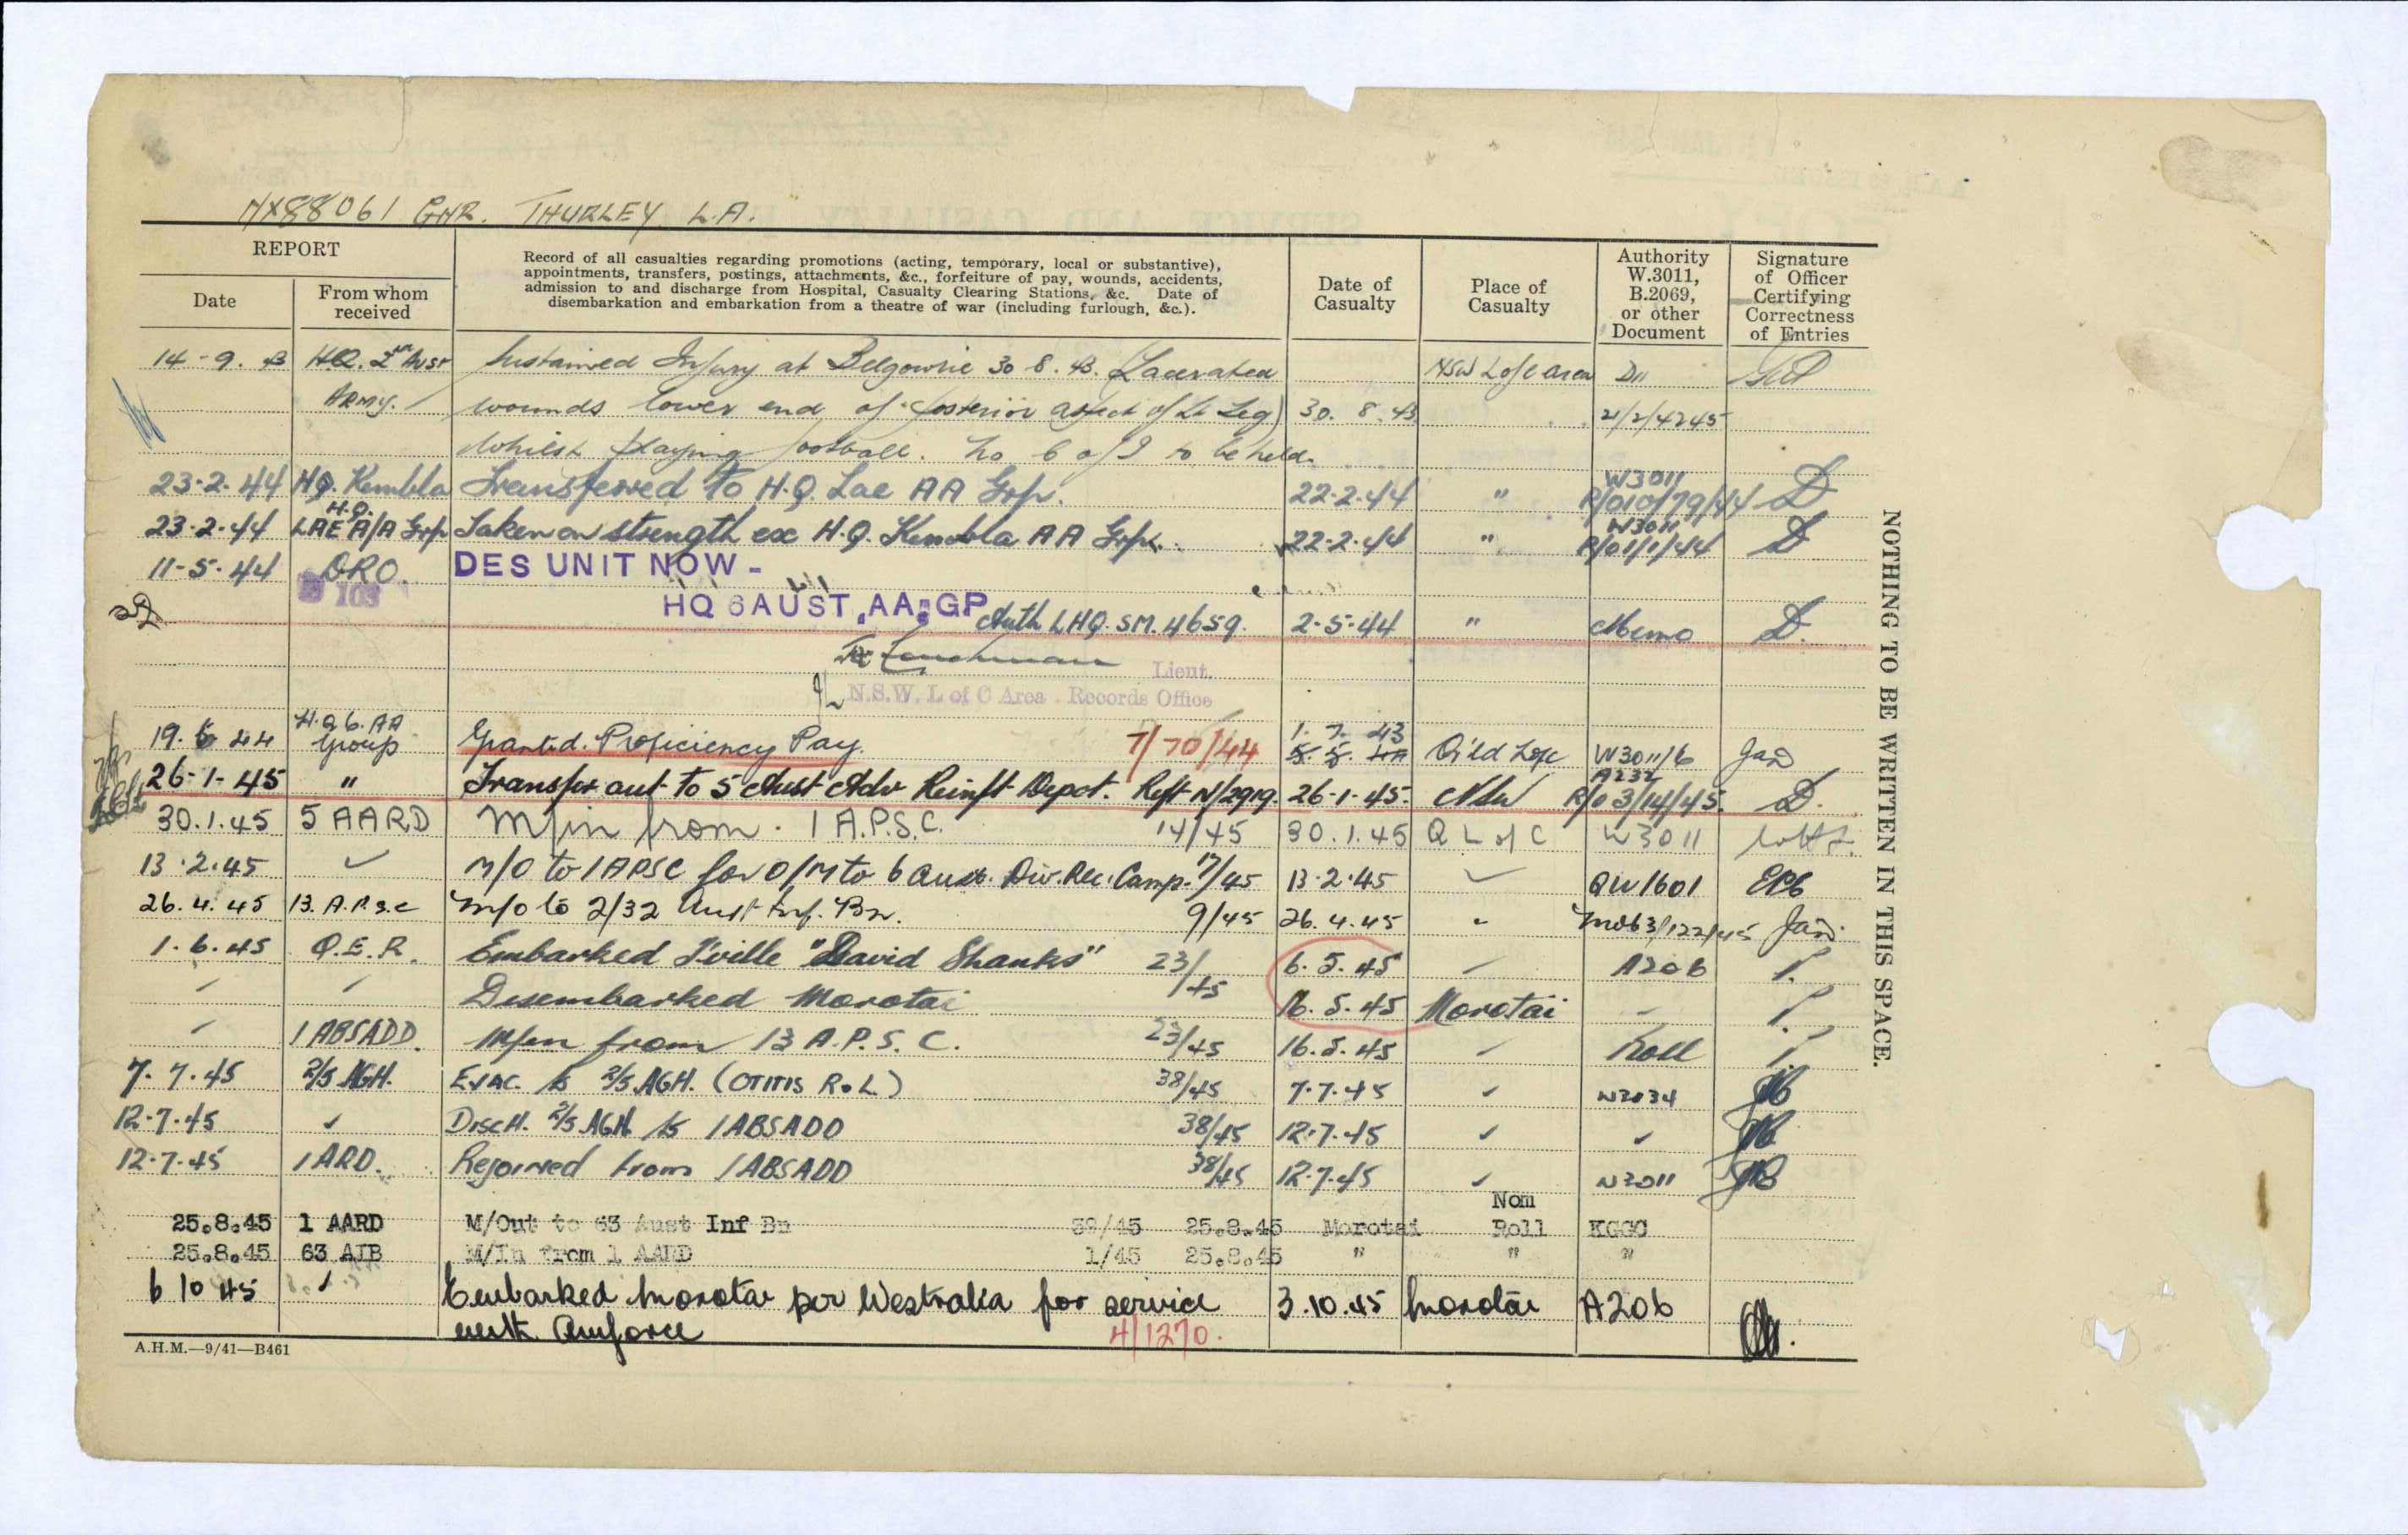 NX88061 GNR. THURLEY L.A.
REPORT
Date
From whom received
Record of all casualties regarding promotions (acting, temporary, local or substantive),
appointments, transfers, postings, attachments, &c., forfeiture of pay, wounds, accidents,
admission to and discharge from Hospital, Casualty Clearing Stations, &c. Date of
disembarkation and embarkation from a theatre of war (including furlough, &c.).
Date of Casualty
Place of Casualty
Authority W.3011, B.2069, or other Document
Signature of Officer Certifying Correctness of Entries
14-9.43 HQ. 2nd Aust Sustained Injury at Belgownie 30.8.43. (Lacerated NSW L of C area
Army. wounds lower end of posterior aspect of Lt Leg) 30.8.43 21/2/4245
Whilst playing football. No C of I to be held.
23-2-44 HQ. Kembla Transferred to H.Q. Lae AA Grp. 22-2-44 " W3011 R/010/79/44 D
23-2-44 H.Q. LAE A/A Grp Taken on strength ex H.Q. Kembla AA Grp. 22-2-44 " W3011 R/01/1/44 D
11-5-44 ORO. DES UNIT NOW -
103 HQ 6 AUST. AA. GP Auth LHQ. SM. 4659. 2-5-44 " Memo D.
Lieut.
N.S.W. L of C Area Records Office
19.6 44 H.Q 6. AA Group Granted Proficiency Pay. 7/70/44 1.7.43 5.5.44 Q'ld LofC W3011/6
26-1-45 " Transfer out to 5 Aust Adv Reinft Depot. Reft N/2919. 26-1-45. NSW A232 R/03/14/45. D.
30.1.45 5 AARD M/in from 1 A.P.S.C. 14/45 30.1.45 Q L of C W3011
13.2.45 M/O to 1 APSC for O/M to 6 Aust. Div. Rec. Camp. 17/45 13.2.45 QW1601
26.4.45 13.A.P.S.C M/O to 2/32 Aust Inf. Bn. 9/45 26.4.45 " Mob3/122/45
1.6.45 Q.E.R. Embarked T'ville "David Shanks" 23/45 6.5.45 A206
Disembarked Morotai 16.5.45 Morotai
1 ABSADD. M/in from 13 A.P.S.C. 23/45 16.5.45 Roll
7.7.45 2/5 AGH. Evac. to 2/5 AGH. (OTITIS R & L) 38/45 7.7.45 W3034
12.7.45 Disch. 2/5 AGH to 1 ABSADD 38/45 12.7.45
12.7.45 1 ARD. Rejoined from 1 ABSADD 38/45 12.7.45 W3011
25.8.45 1 AARD M/Out to 63 Aust Inf Bn 39/45 25.8.45 Morotai Nom Roll KGGC
25.8.45 63 AIB M/In from 1 AARD 1/45 25.8.45 " " "
6 10 45 Embarked Morotai per Westralia for service 3.10.45 Morotai A206
with Amforce 4/1270.
A.H.M.—9/41—B461
NOTHING TO BE WRITTEN IN THIS SPACE.